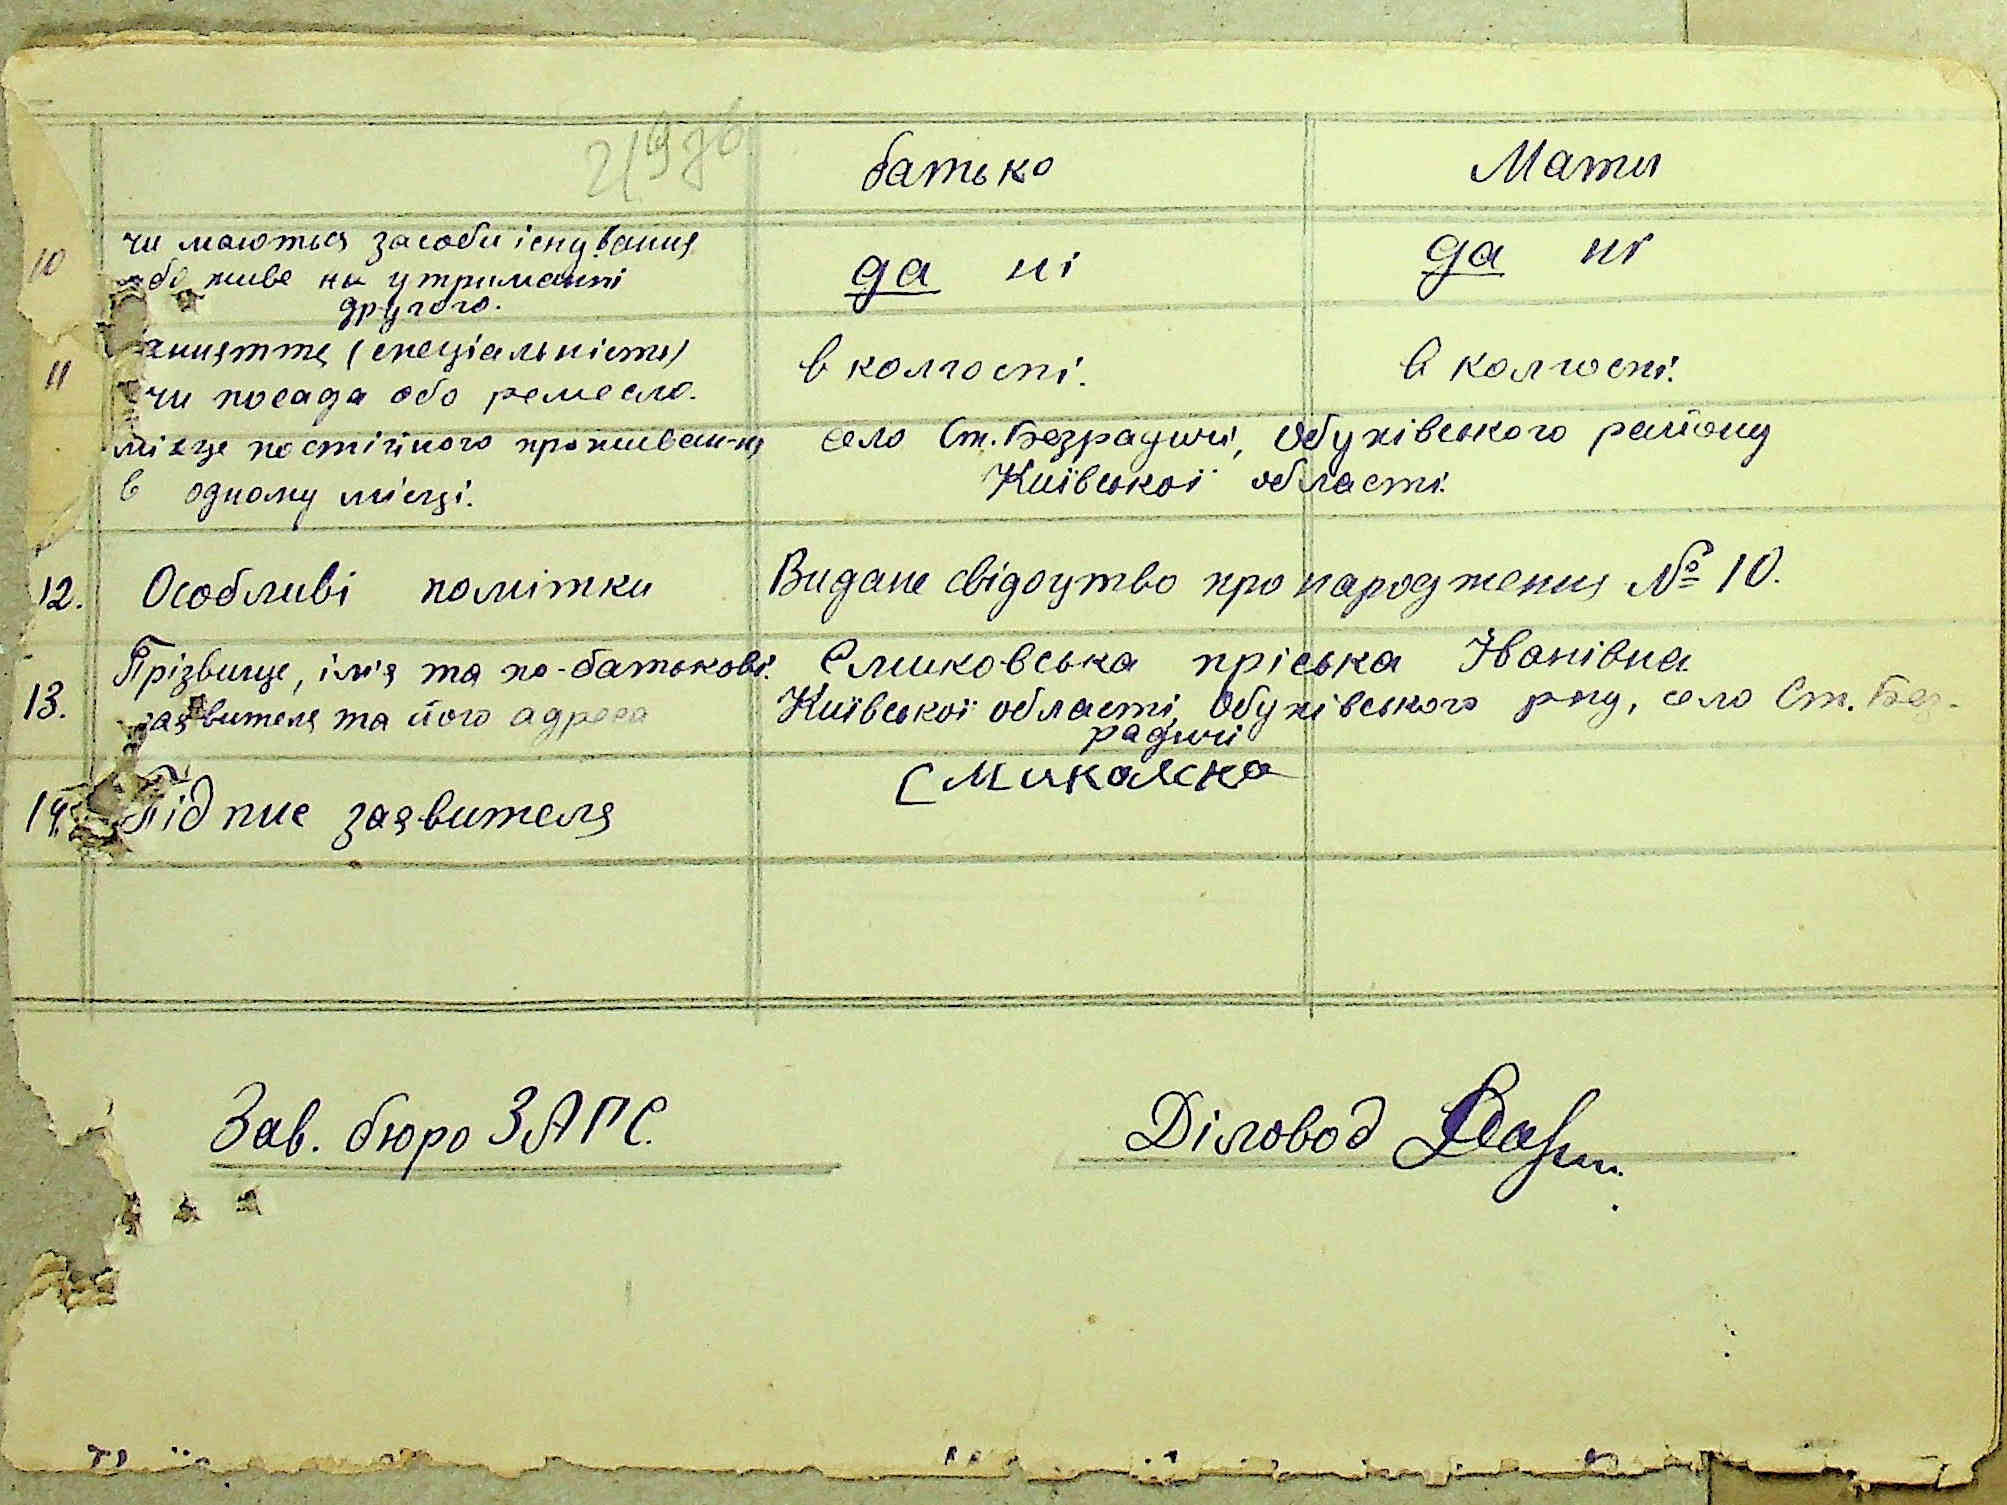 батько Мати
10 чи маються засоби існування
або живе на утриманні
другого.
да ні да ні
11 заняття (спеціальність)
чи посада або ремесло.
в колгоспі. в колгоспі.
місце постійного проживан-ня
в одному місці.
село Ст. Безрадичі, Обухівського району
Київської області.
12. Особливі помітки Видане свідоцтво про народження № 10.
13. Прізвище, ім'я та по-батькові.
заявителя та його адреса
Смиковська Пріська Іванівна
Київської області, Обухівського р-ну, село Ст. Без-
радичі
14. Підпис заявителя
Зав. бюро ЗАГС. Діловод